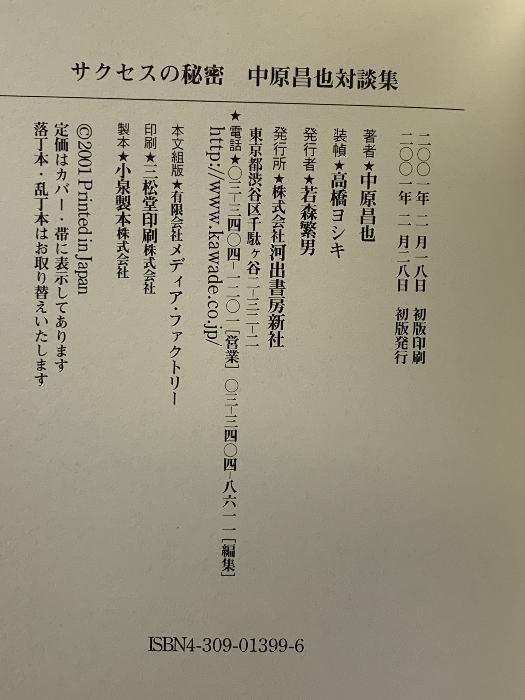 サクセスの秘密 中原昌也対談集
二〇〇一年 二月一八日 初版印刷
二〇〇一年 二月二八日 初版発行
著者★中原昌也
装幀★高橋ヨシキ
発行者★若森繁男
発行所★株式会社河出書房新社
東京都渋谷区千駄ヶ谷二-三二-二
★電話★〇三-三四〇四-一二〇一[営業] 〇三-三四〇四-八六一一[編集]
http://www.kawade.co.jp/
本文組版★有限会社メディア・ファクトリー
印刷★三松堂印刷株式会社
製本★小泉製本株式会社
©2001 Printed in Japan
定価はカバー・帯に表示してあります
落丁本・乱丁本はお取り替えいたします
ISBN4-309-01399-6